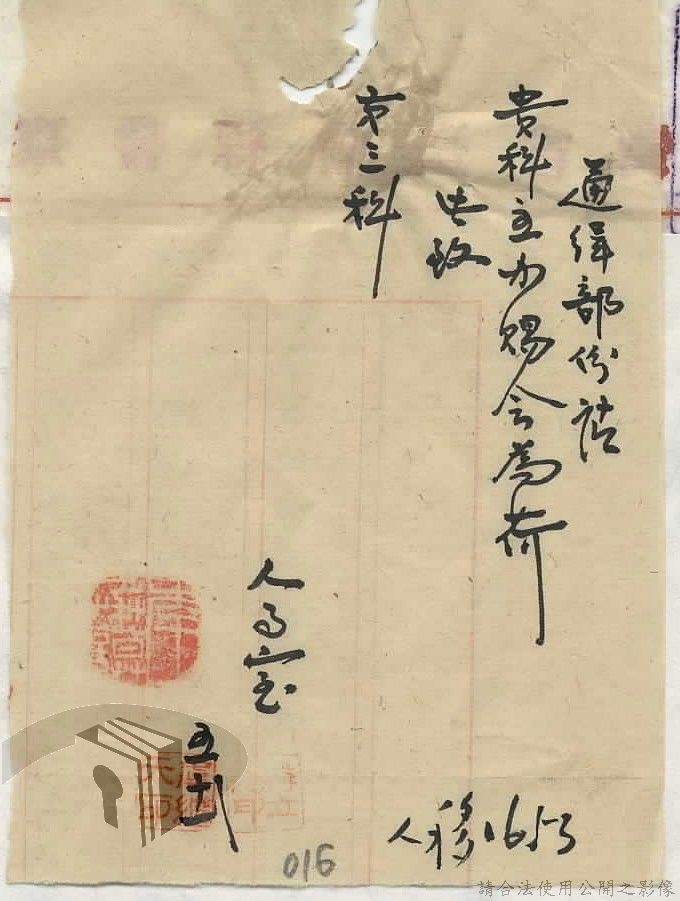 通緝部份請
貴科主办賜会為荷
此致
第三科
人事室
五
人移1653
016
請合法使用公開之影像